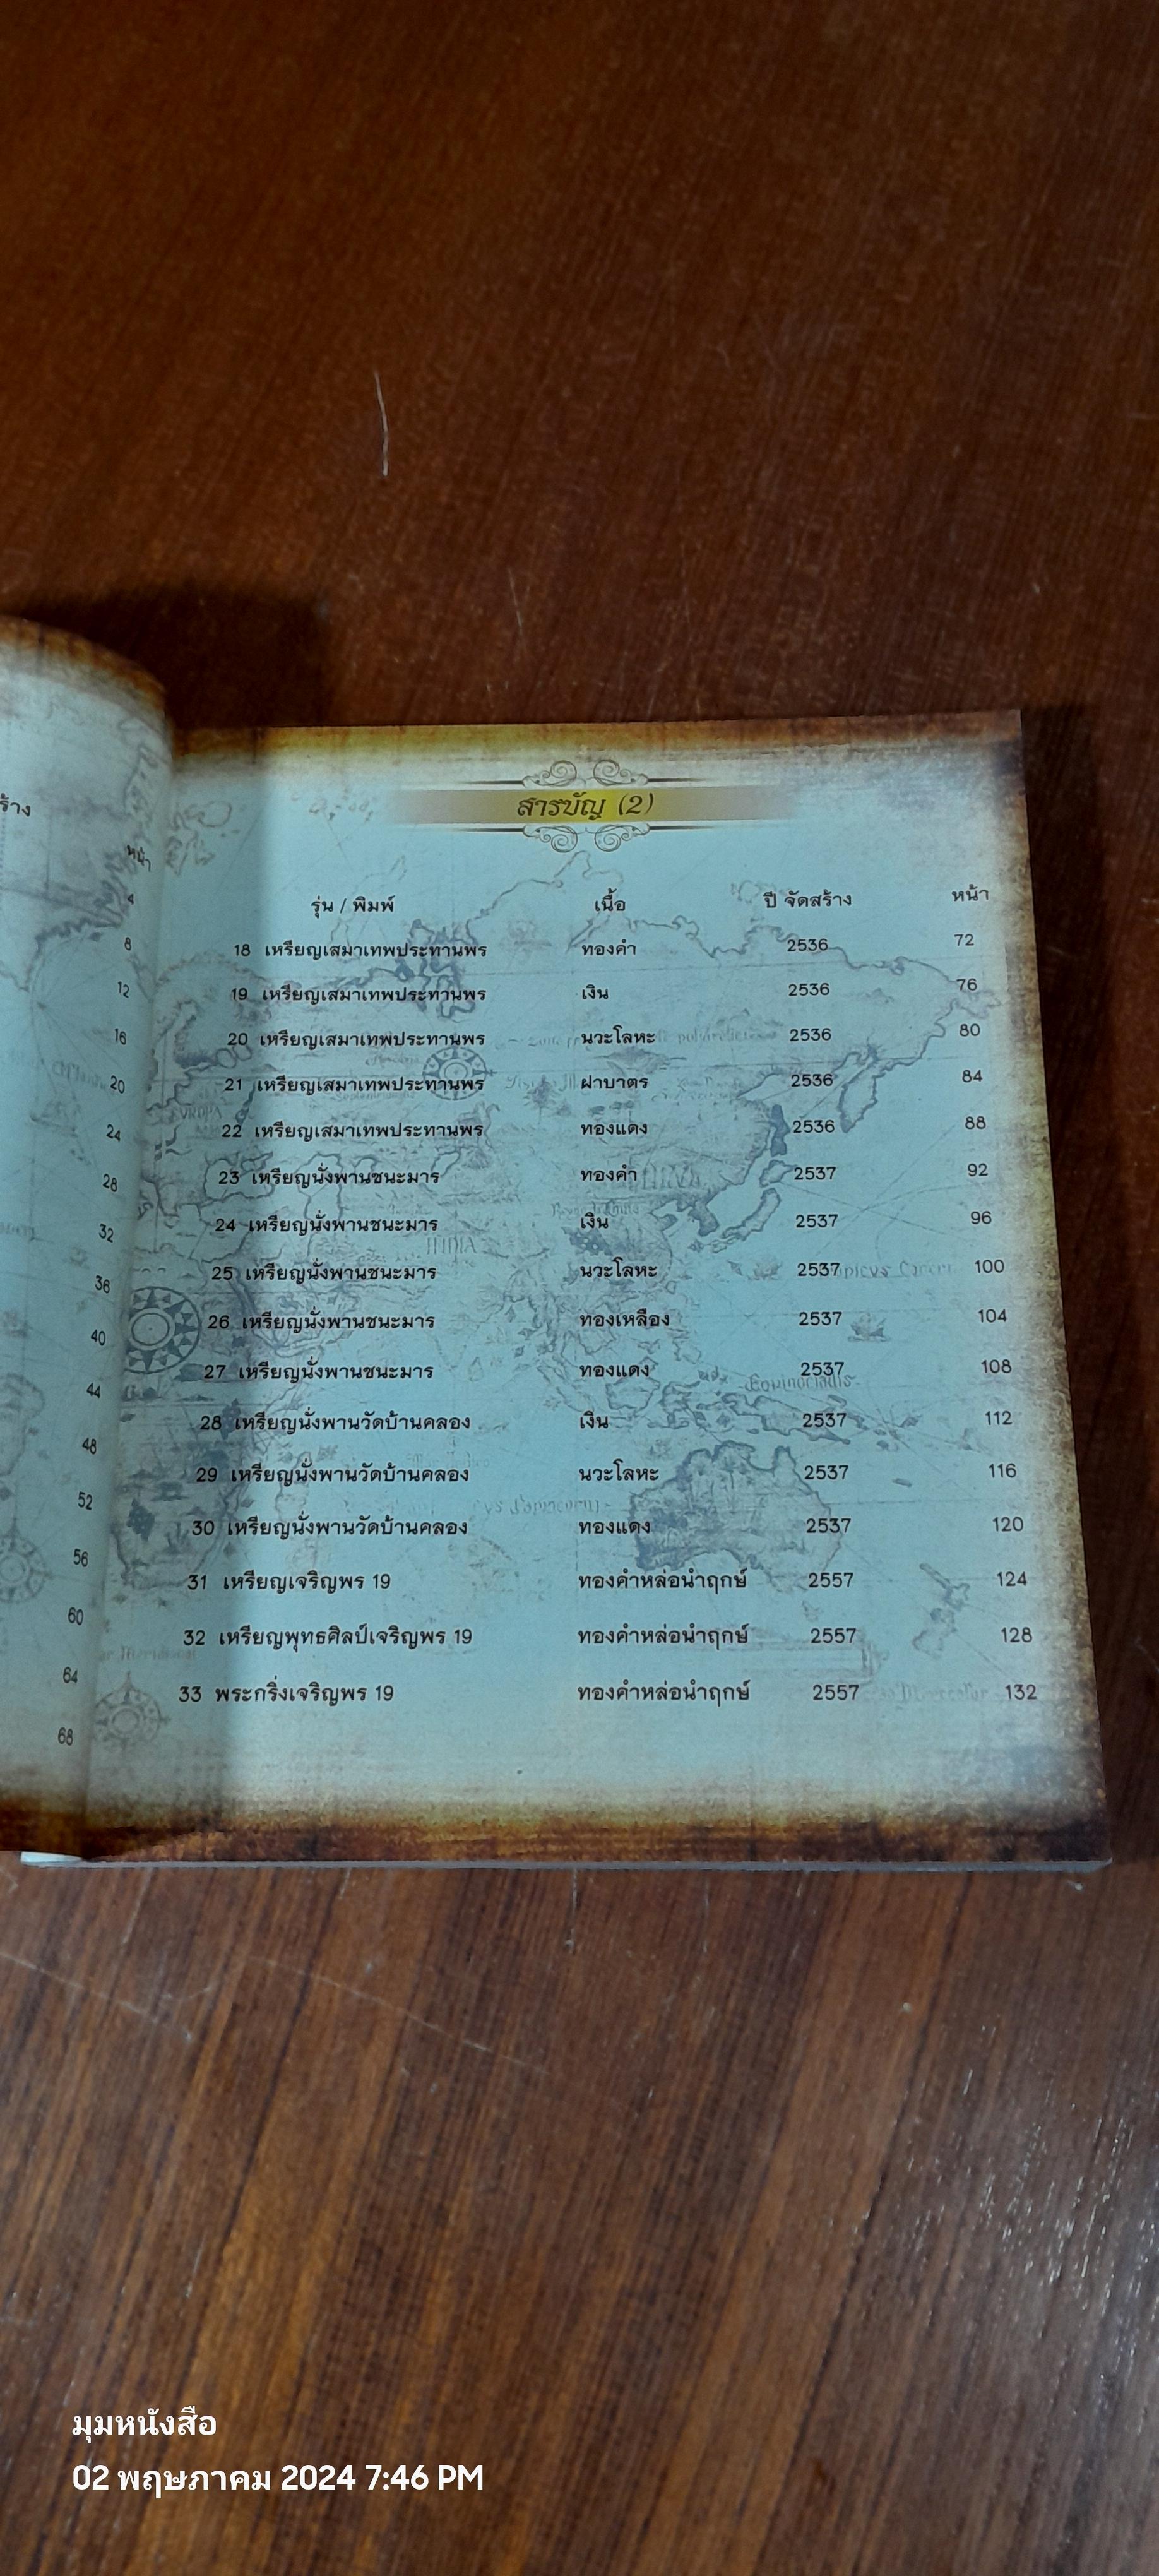 ร้าง
หน้า
4
8
12
16
20
24
28
32
36
40
44
48
52
56
60
64
68
สารบัญ (2)
รุ่น / พิมพ์ เนื้อ ปี จัดสร้าง หน้า
18 เหรียญเสมาเทพประทานพร ทองคำ 2536 72
19 เหรียญเสมาเทพประทานพร เงิน 2536 76
20 เหรียญเสมาเทพประทานพร นวะโลหะ 2536 80
21 เหรียญเสมาเทพประทานพร ฝาบาตร 2536 84
22 เหรียญเสมาเทพประทานพร ทองแดง 2536 88
23 เหรียญนั่งพานชนะมาร ทองคำ 2537 92
24 เหรียญนั่งพานชนะมาร เงิน 2537 96
25 เหรียญนั่งพานชนะมาร นวะโลหะ 2537 100
26 เหรียญนั่งพานชนะมาร ทองเหลือง 2537 104
27 เหรียญนั่งพานชนะมาร ทองแดง 2537 108
28 เหรียญนั่งพานวัดบ้านคลอง เงิน 2537 112
29 เหรียญนั่งพานวัดบ้านคลอง นวะโลหะ 2537 116
30 เหรียญนั่งพานวัดบ้านคลอง ทองแดง 2537 120
31 เหรียญเจริญพร 19 ทองคำหล่อนำฤกษ์ 2557 124
32 เหรียญพุทธศิลป์เจริญพร 19 ทองคำหล่อนำฤกษ์ 2557 128
33 พระกริ่งเจริญพร 19 ทองคำหล่อนำฤกษ์ 2557 132
INDIA
มุมหนังสือ
02 พฤษภาคม 2024 7:46 PM